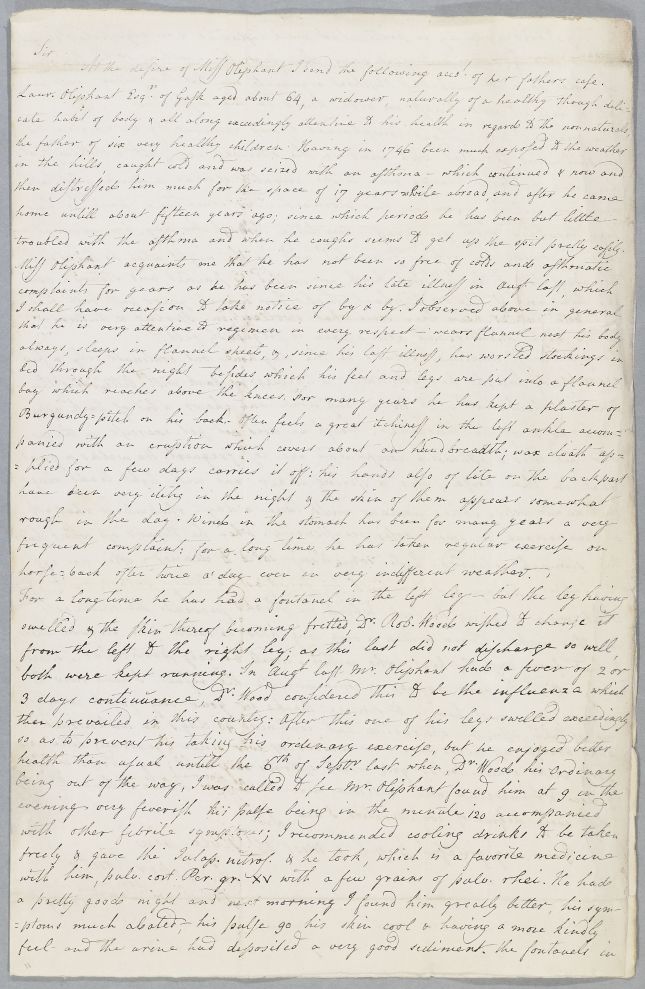 Sir
At the desire of Miss Oliphant I send the following acct. of her fathers case.
Laur. Oliphant Esqr. of Gask aged about 64, a widower, naturally of a healthy though deli-
cate habit of body & all along exceedingly attentive to his health in regard to the nonnaturals
the father of six very healthy children. Having in 1746 been much exposed to the weather
in the hills caught cold and was seized with an asthma - which continued & now and
then distressed him much for the space of 17 years while abroad, and after he came
home untill about fifteen years ago; since which periods he has been but little
troubled with the asthma and when he coughs seems to get up the spit pretty easily.
Miss Oliphant acquaints me that he has not been so free of colds and asthmatic
complaints for years as he has been since his late illness in Augt last, which
I shall have occasion to take notice of by & by. I observed above in general
that he is very attentive to regimen in every respect - wears flannel next his body
always, sleeps in flannel sheets, &, since his last illness, has worsted stockings in
bed through the night - besides which his feet and legs are put into a flannel
bag which reaches above the knees. For many years he has kept a plaster of
Burgundy=pitch on his back. Often feels a great itchiness in the left ankle accom=
panied with an eruption which covers about an handbreadth; wax cloath ap-
=plied for a few days carries it off: his hands also of late on the back part
have been very itchy in the night & the skin of them appears somewhat
rough in the day. Wind in the stomach has been for many years a very
frequent complaint; for a long time he has taken regular exercise on
horse=back often twice a day even in very indifferent weather.
For a long time he has had a fontanel in the left leg - but the leg having
swelled & the skin thereof becoming fretted Dr. Rob. Wood wished to change it
from the left to the right leg; as this last did not discharge so well
both were kept running. In Augt last Mr. Oliphant had a fever of 2 or
3 days continuance, Dr. Wood considered this to be the influenza which
then prevailed in this country: After this one of his legs swelled exceedingly
so as to prevent his taking his ordinary exercise, but he enjoyed better
health than usual untill the 6th of Septr last when, Dr. Wood his ordinary
being out of the way, I was called to see Mr. Oliphant found him at 9 in the
evening very feverish his pulse being in the minute 120 accompanied
with other febrile symptoms; I recommended cooling drinks to be taken
freely & gave the Julap. nitros. & he took, which is a favorite medicine
with him, pulv. cort. Per. gr. XV with a few grains of pulv. rhei. He had
a pretty good night and next morning I found him greatly better, his sym-
=ptoms much abated - his pulse 90 his skin cool & having a more kindly
feel - and the urine had deposited a very good sediment. The fontanels in